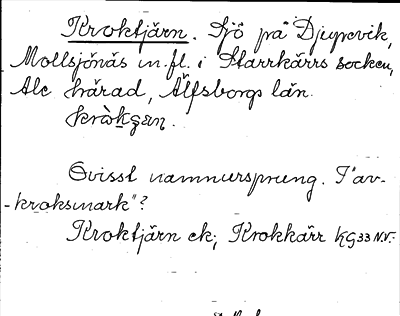 Kroktjärn. Sjö på Djupevik,
Mollsjönäs m.fl. i Starrkärrs socken,
Ale härad, Älfsborgs län.
Ovisst namnursprung. T. av-
-kroksmark"?
Kroktjärn ek; Krokkärr KG33 N.V.-